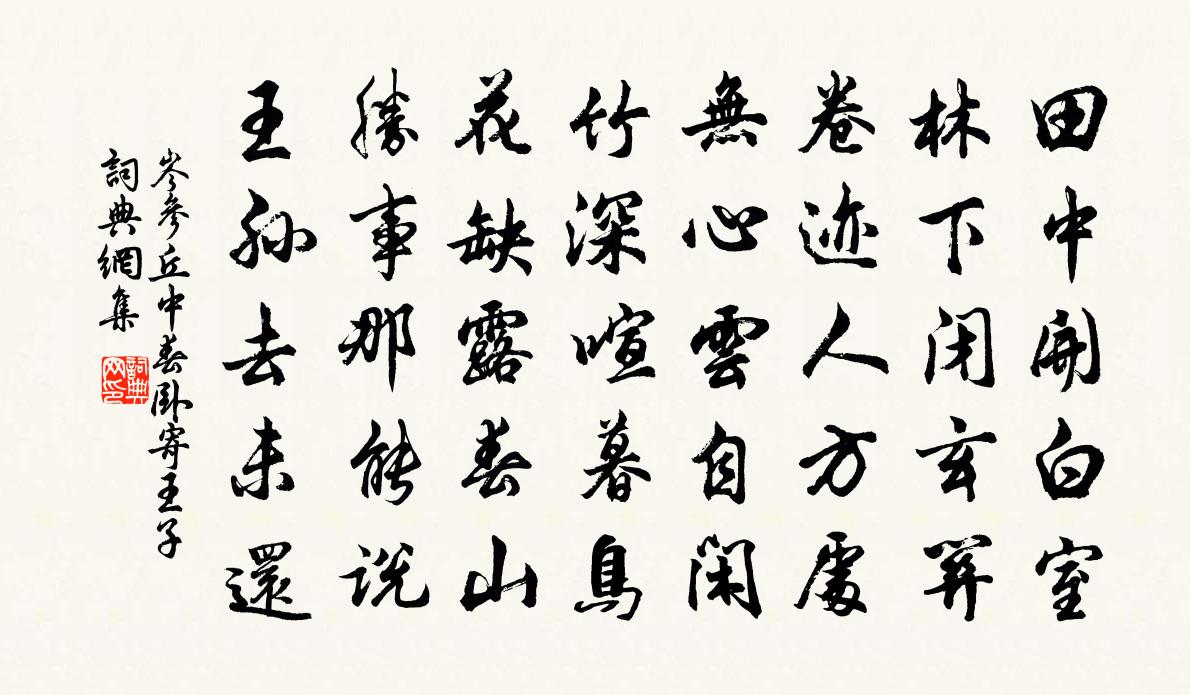 田中開白室
林下閉玄關
卷迹人方處
無心雲自閑
竹深喧暮鳥
花缺露春山
勝事那能說
王孫去未還
岑參丘中春臥寄王子
詞典網集
詞典
网印